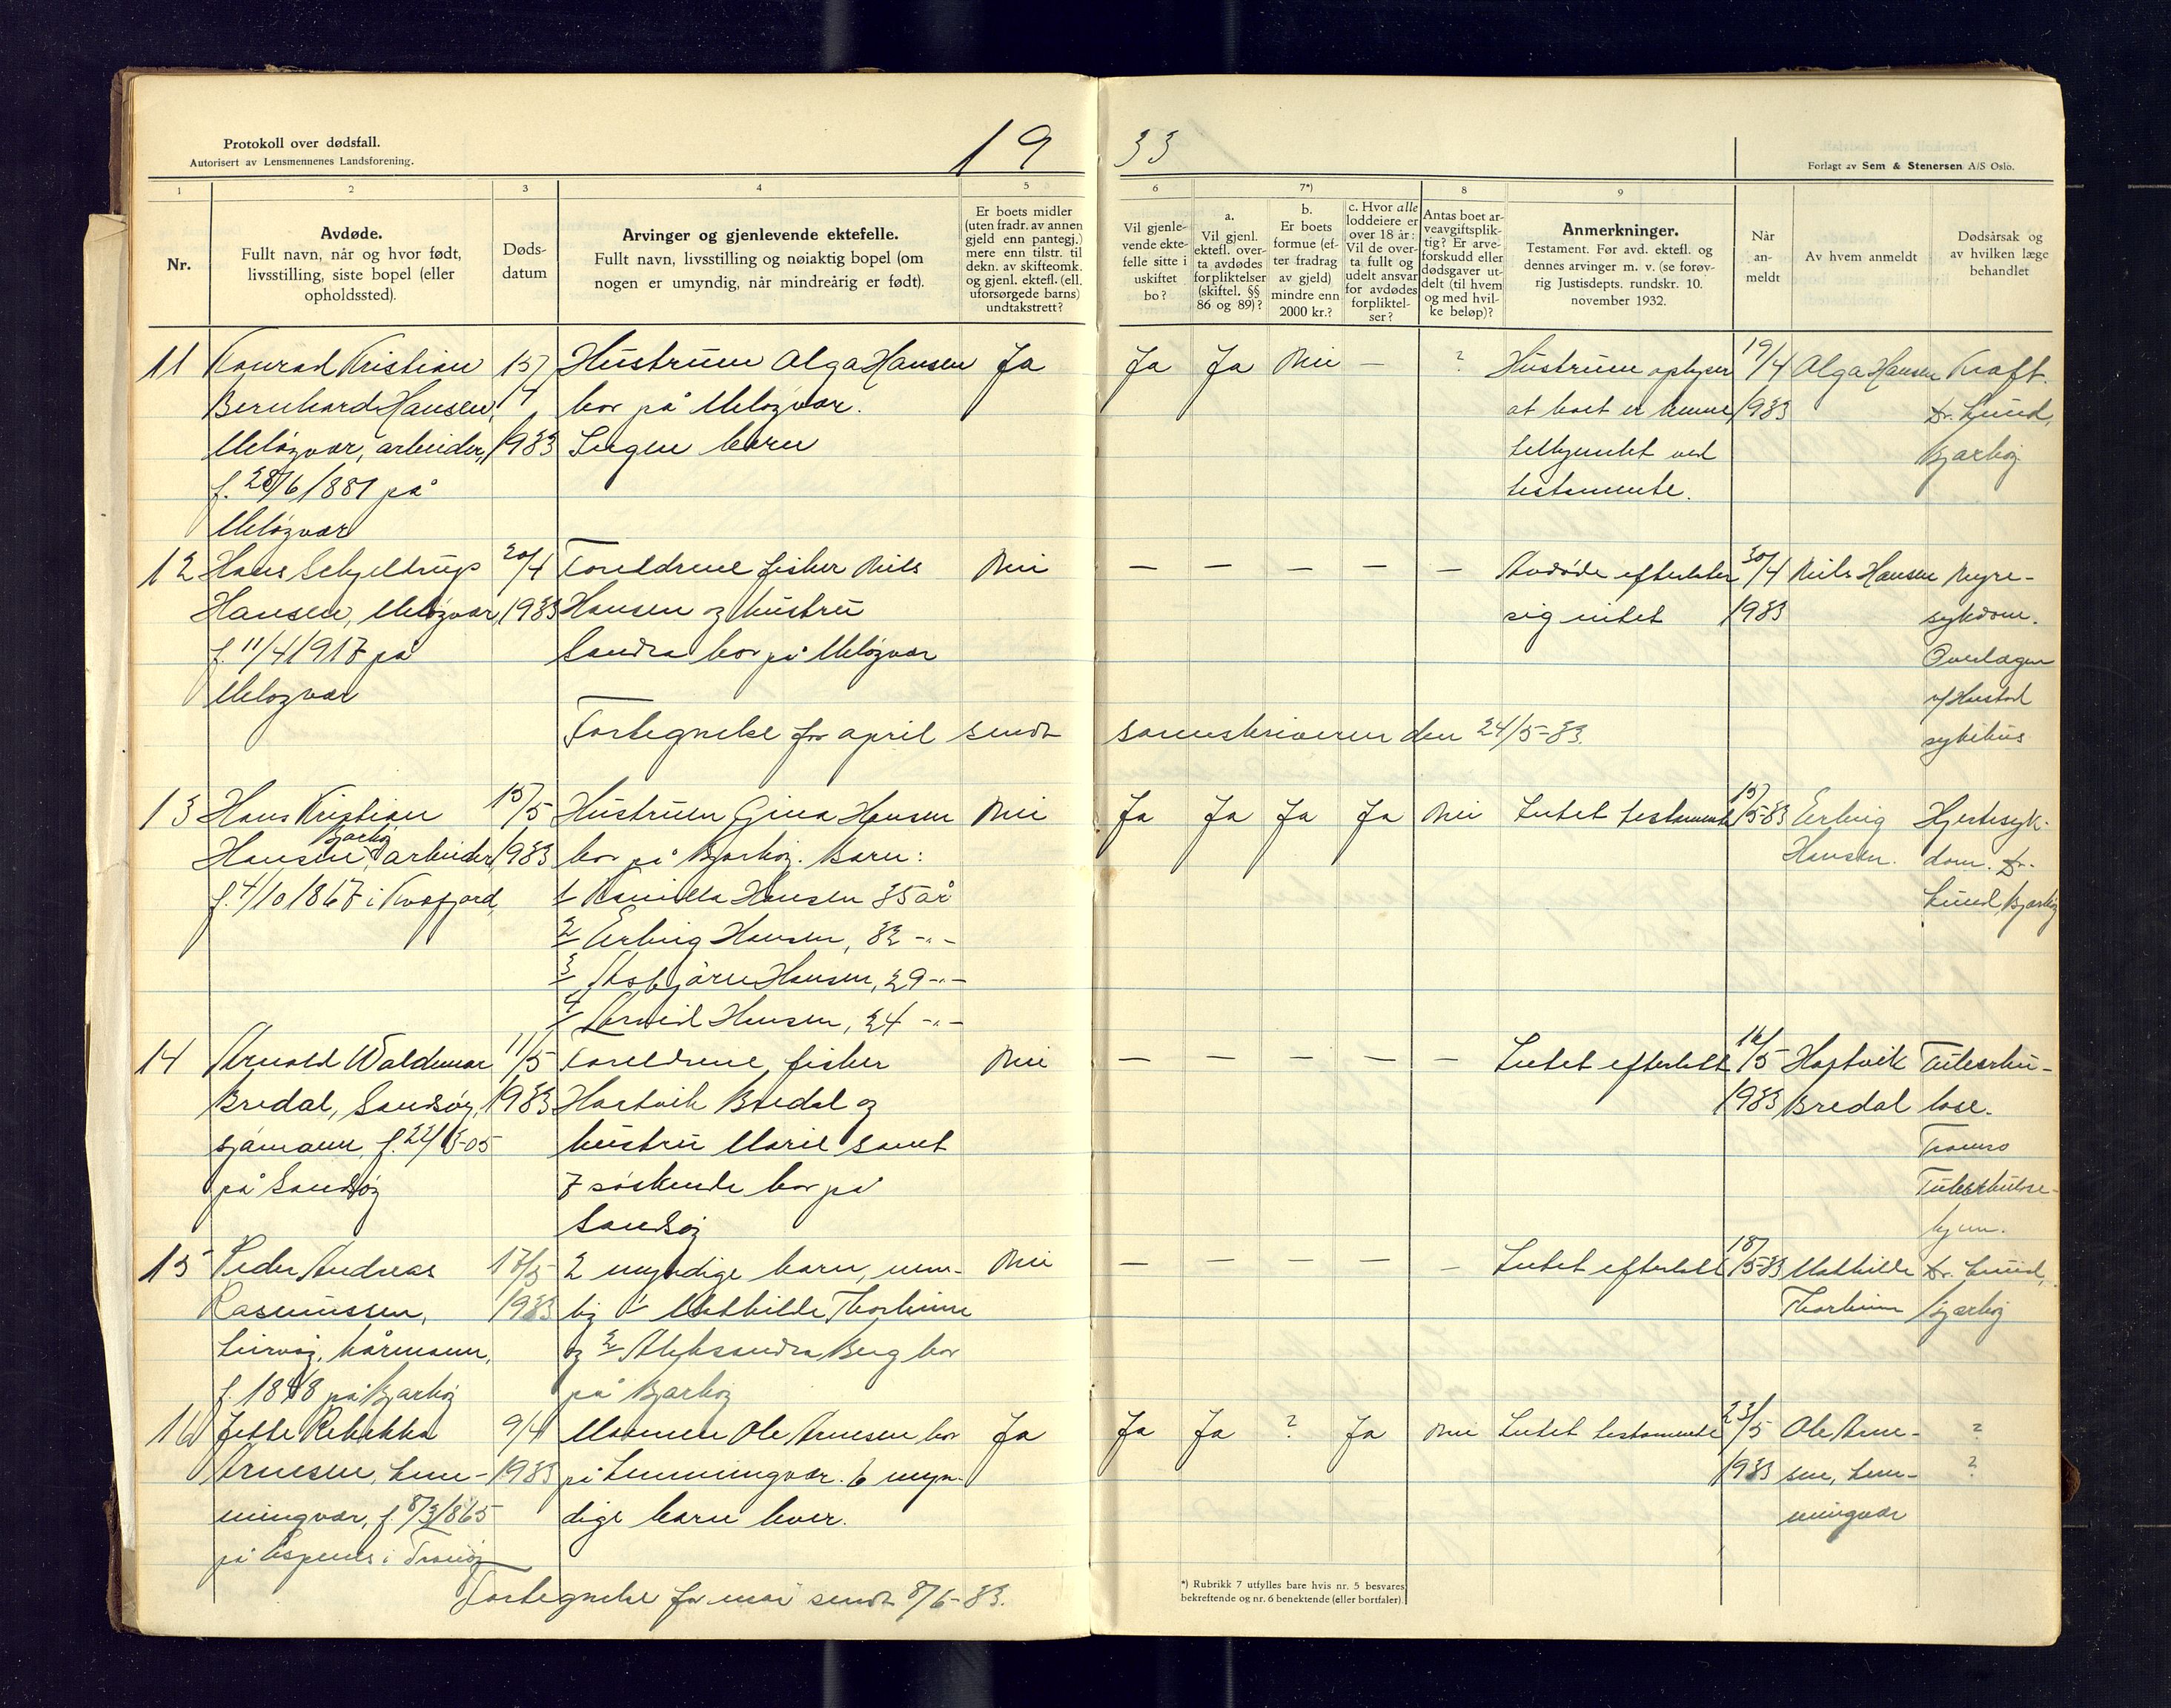 Protokoll over dødsfall.
Autorisert av Lensmennenes Landsforening.
19 33
Forlagt av Sem & Stenersen A/S Oslo.
1 2 3 4 5 6 7*) 8 9
Nr.
Avdøde.
Fullt navn, når og hvor født,
livsstilling, siste bopel (eller
opholdssted).
Døds-
datum
Arvinger og gjenlevende ektefelle.
Fullt navn, livsstilling og nøiaktig bopel (om
nogen er umyndig, når mindreårig er født).
Er boets midler
(uten fradr. av annen
gjeld enn pantegj.)
mere enn tilstr. til
dekn. av skifteomk.
og gjenl. ektef. (ell.
uforsørgede barns)
undtakstrett?
Vil gjenle-
vende ekte-
felle sitte i
uskiftet
bo?
a.
Vil gjenl.
ektefl. over-
ta avdødes
forpliktelser
(skiftel. §§
86 og 89)?
b.
Er boets
formue (ef-
ter fradrag
av gjeld)
mindre enn
2000 kr.?
c. Hvor alle
loddeiere er
over 18 år:
Vil de over-
ta fullt og
udelt ansvar
for avdødes
forpliktel-
ser?
Antas boet ar-
veavgiftsplik-
tig? Er arve-
forskudd eller
dødsgaver ut-
delt (til hvem
og med hvil-
ke beløp)?
Anmerkninger.
Testament. Før avd. ektefl. og
dennes arvinger m. v. (se forøv-
rig Justisdepts. rundskr. 10.
november 1932.
Når
an-
meldt
Av hvem anmeldt
Dødsårsak og
av hvilken læge
behandlet
11 Konrad Kristian 15/ Hustruen Alga Hansen Ja Ja Ja Nei — ? Hustruen oplyser 19/4 Alga Hansen Kræft.
Bernhard Hansen, 4 bor på Meløyvær. at boet er henne 1933 Dr. Lund,
Meløyvær, arbeider, 1933 Ingen barn tilkjendt ved Bjarkøy
f. 28/6 1881 på testamente.
Meløyvær
12 Hans Schjeldrup 20/4 Foreldrene fisker Nils Nei — — — — — Avdøde efterlater 30/4 Nils Hansen Nyre-
Hansen, Meløyvær 1933 Hansen og hustru sig intet 1933 sykdom.
f. 11/4 1917 på Sandra bor på Meløyvær Overlægen
Meløyvær v/Harstad
Fortegnelse for april sendt sorenskriveren den 24/5-33. sykehus
13 Hans Kristian 15/5 Hustruen Gina Hansen Nei Ja Ja Ja Ja Nei Intet testamente 15/5-33 Erling Hjertesyk-
Bjarkøy
Hansen, arbeider, 1933 bor på Bjarkøy. Barn: Hansen. dom. Dr.
f. 4/10 1867 i Kvæfjord 1 Kamilla Hansen 35 år Lund, Bjarkøy
2 Erling Hansen, 32 -"-
3 Asbjørn Hansen, 29 -"-
4 Arvid Hansen, 24 -"-
14 Arnold Waldemar 11/5 Foreldrene, fisker Nei — — — — — Intet efterlatt 16/5 Hartvik Tuberku-
Bredal, Sandsøy, 1933 Hartvik Bredal og 1933 Bredal lose.
sjømann, f. 22/3-05 hustru Marie samt Tromsø
på Sandsøy 7 søskende bor på Tuberkulose-
Sandsøy hjem.
15 Peder Andreas 17/5 2 myndige barn, nem- Nei — — — — — Intet efterlatt 18/5-33 Mathilde Dr. Lund,
Rasmussen, 1933 lig 1 Mathilde Thorheim Thorheim Bjarkøy
Leirvåg, kårmann, og 2 Aleksandra Berg bor
f. 1848 på Bjarkøy på Bjarkøy
16 Jette Rebekka 9/4 Mannen Ole Arnesen bor Ja Ja Ja ? Ja Nei Intet testamente 23/5 Ole Arne- ?
Arnesen, Lem- 1933 på Lemmingvær. 6 myn- 1933 sen, Lem- ?
mingvær, f. 8/3 1865 dige barn lever. mingvær
på Espenes i Tranøy
Fortegnelse for mai sendt 8/6-33.
*) Rubrikk 7 utfylles bare hvis nr. 5 besvares
bekreftende og nr. 6 benektende (eller bortfaller).